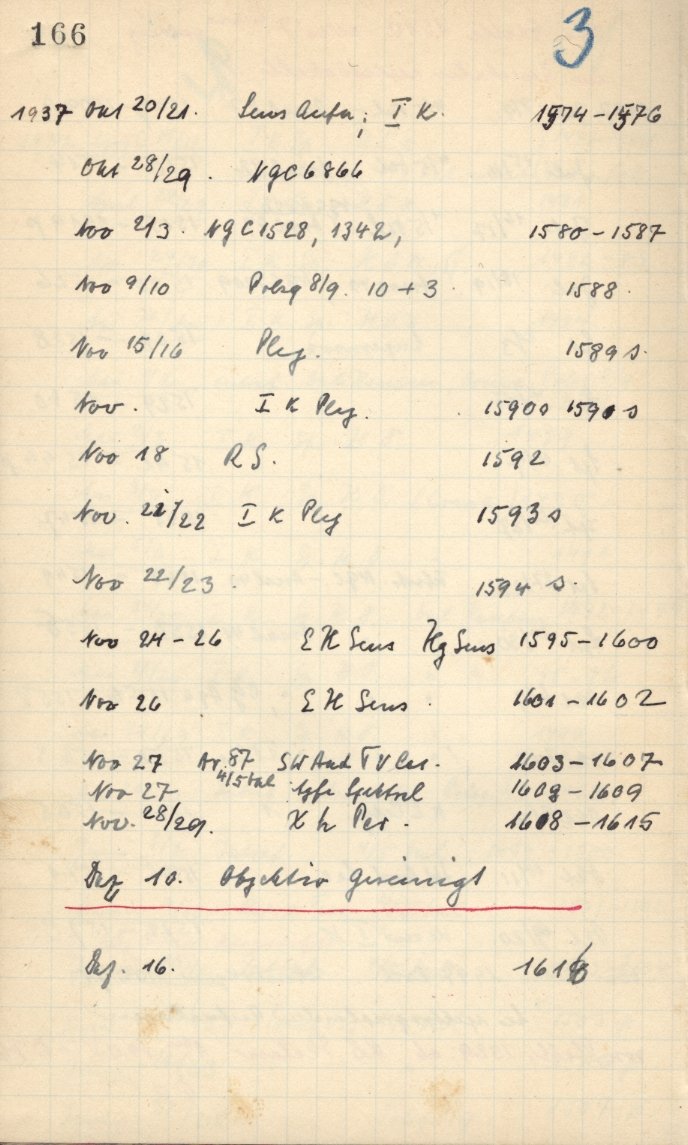 166 3
1937 Okt 20/21. Sens Aufn; I K. 1574-1576
Okt 28/29. NGC 6866
Nov 2/3. NGC 1528, 1342, 1580-1587
Nov 9/10 8/9. 10 + 3. 1588.
Nov 15/16 Plej. 1589 s.
Nov. I K Plej. 1590s 1590 s
Nov 18 R S. 1592
Nov. 21/22 I K Plej 1593 s
Nov 22/23. 1594 s.
Nov 24-26 E K Sens Hg Sens 1595-1600
Nov 26 E K Sens. 1601-1602
Nov 27 87 SW And TV Cas. 1603-1607
Nov 27 1609
Nov. 28/29. X h Per. 1608-1615
Dez 10. Objektiv gereinigt
Dez. 16. 1616